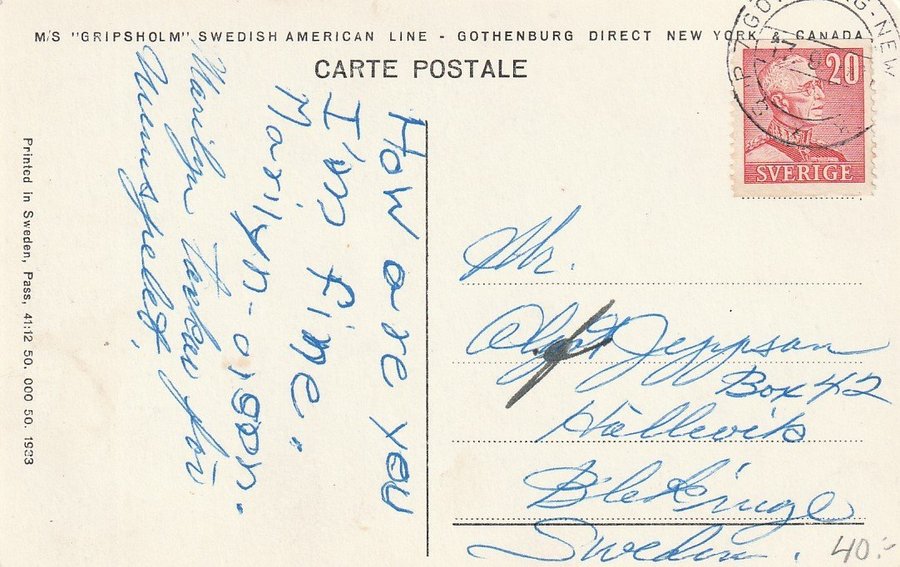 M/S "GRIPSHOLM" SWEDISH AMERICAN LINE - GOTHENBURG DIRECT NEW YORK & CANADA
CARTE POSTALE
How are you
I'm fine.
Marilyn-oigoor.
Marilyn tackar för
20
SVERIGE
Mr.
Jeppson
Box 42
Hällevik
Blekinge
Sweden.
40:-
Printed in Sweden, Pass, 41:12 50. 000 50. 1933